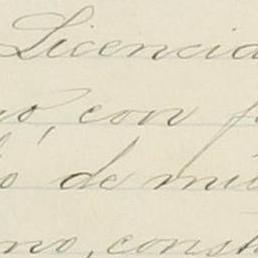 Licencia
no, con f
o de mil
no, const